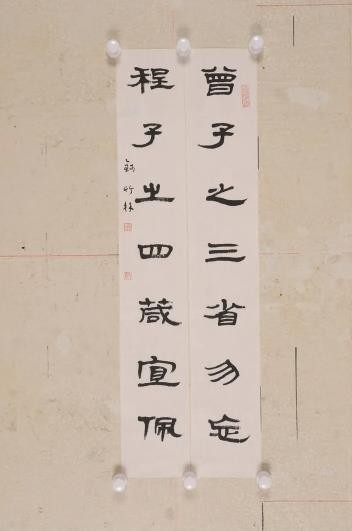 曾子之三省勿忘
程子之四箴宜佩
竹林